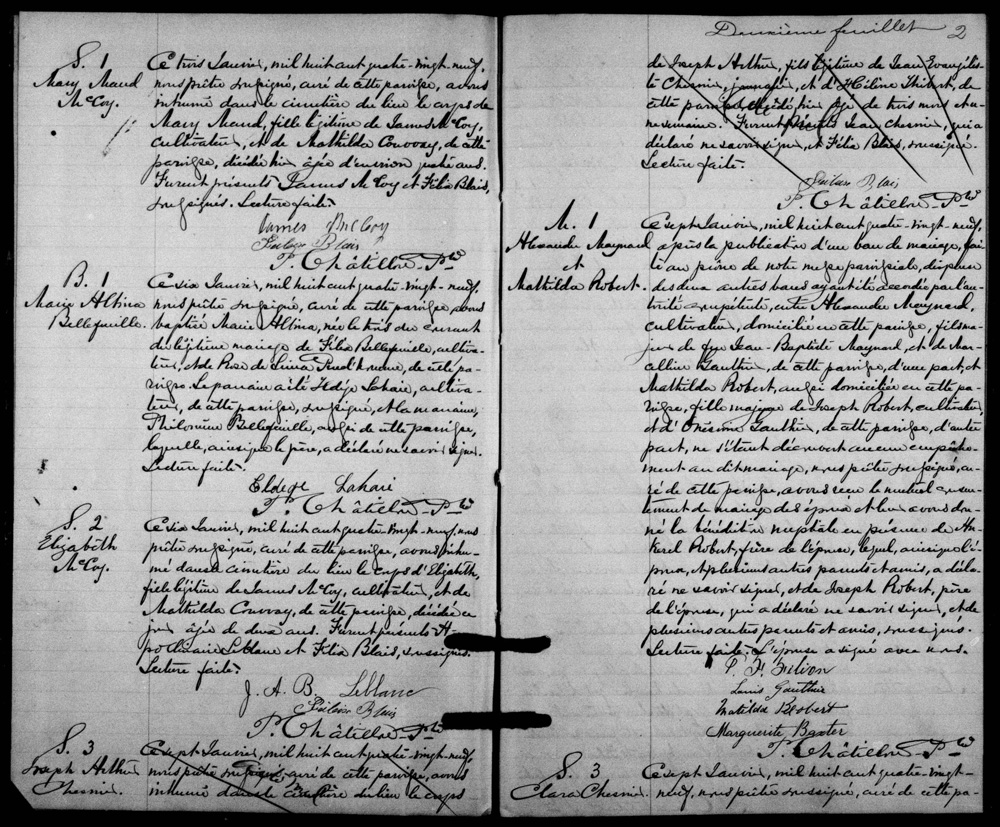 S. 1
Mary Maud
McCoy.
Ce trois Janvier, mil huit cent quatre-vingt-neuf,
nous prêtre soussigné, curé de cette paroisse, avons
inhumé dans le cimetière du lieu le corps de
Mary Maud, fille légitime de James McCoy,
cultivateur, et de Mathilda Convoay, de cette
paroisse, décédée hier âgée d'environ quatre ans.
Furent présents James McCoy et Félix Blais,
soussignés. Lecture faite.
James McCoy
Blais
P. Châtillon Ptre
B. 1
Marie Altina
Bellefeuille.
Ce six Janvier, mil huit cent quatre-vingt-neuf,
nous prêtre soussigné, curé de cette paroisse avons
baptisé Marie Altina, née le trois du courant
du légitime mariage de Félix Bellefeuille, cultiva-
teur, et de Rose de Lima, de cette pa-
roisse. Le parrain a été Lahaie, cultiva-
teur, de cette paroisse, soussigné, et la marraine,
Philomène Bellefeuille, aussi de cette paroisse,
laquelle, ainsi que le père, a déclaré ne savoir signer.
Lecture faite.
Eldége Lahaie
P. Châtillon Ptre
S. 2
Elizabeth
McCoy.
Ce six Janvier, mil huit cent quatre-vingt-neuf, nous
prêtre soussigné, curé de cette paroisse, avons inhu-
mé dans le cimetière du lieu le corps d'Elizabeth,
fille légitime de James McCoy, cultivateur, et de
Mathilda Convoay, de cette paroisse, décédée ce
jour âgée de deux ans. Furent présents
Leblanc et Félix Blais, soussignés.
Lecture faite.
J. A. B. Leblanc
Blais
P. Châtillon Ptre
S. 3
Joseph Arthur
Chesnier.
Ce sept Janvier, mil huit cent quatre-vingt-neuf,
nous prêtre soussigné, curé de cette paroisse, avons
inhumé dans le cimetière du lieu le corps
Deuxième feuillet 2
de Joseph Arthur, fils légitime de Jean Evangélis-
te Chesnier, journalier, et d'Hélène Thibert, de
cette paroisse, décédé hier âgé de trois mois et u-
ne semaine. Furent présents Jean Chesnier, qui a
déclaré ne savoir signer, et Félix Blais, soussigné.
Lecture faite.
Blais
P. Châtillon Ptre
M. 1
Alexandre Maynard
et
Mathilda Robert.
Ce sept Janvier, mil huit cent quatre-vingt-neuf,
après la publication d'un ban de mariage, fai-
te au prône de notre messe paroissiale, dispense
des deux autres bans ayant été accordée par l'au-
torité compétente, entre Alexandre Maynard,
cultivateur, domicilié en cette paroisse, fils ma-
jeur de feu Jean-Baptiste Maynard, et de Mar-
celline Gauthier, de cette paroisse, d'une part, et
Mathilda Robert, aussi domiciliée en cette pa-
roisse, fille majeure de Joseph Robert, cultivateur,
et d'Onésime Gauthier, de cette paroisse, d'autre
part, ne s'étant découvert aucun empêche-
ment au dit mariage, nous prêtre soussigné, cu-
ré de cette paroisse, avons reçu le mutuel consen-
tement de mariage des époux et leur avons don-
né la bénédiction nuptiale en présence de
Robert, frère de l'épouse, lequel, ainsi que l'é-
poux, et plusieurs autres parents et amis, a décla-
ré ne savoir signer, et de Joseph Robert, père
de l'épouse, qui a déclaré ne savoir signer, et de
plusieurs autres parents et amis, soussignés.
Lecture faite. L'épouse a signé avec nous.
Filion
Louis Gauthier
Matilda Robert
Marguerite Baxter
P. Châtillon Ptre
S. 3
Clara Chesnier.
Ce sept Janvier, mil huit cent quatre-vingt-
neuf, nous prêtre soussigné, curé de cette pa-